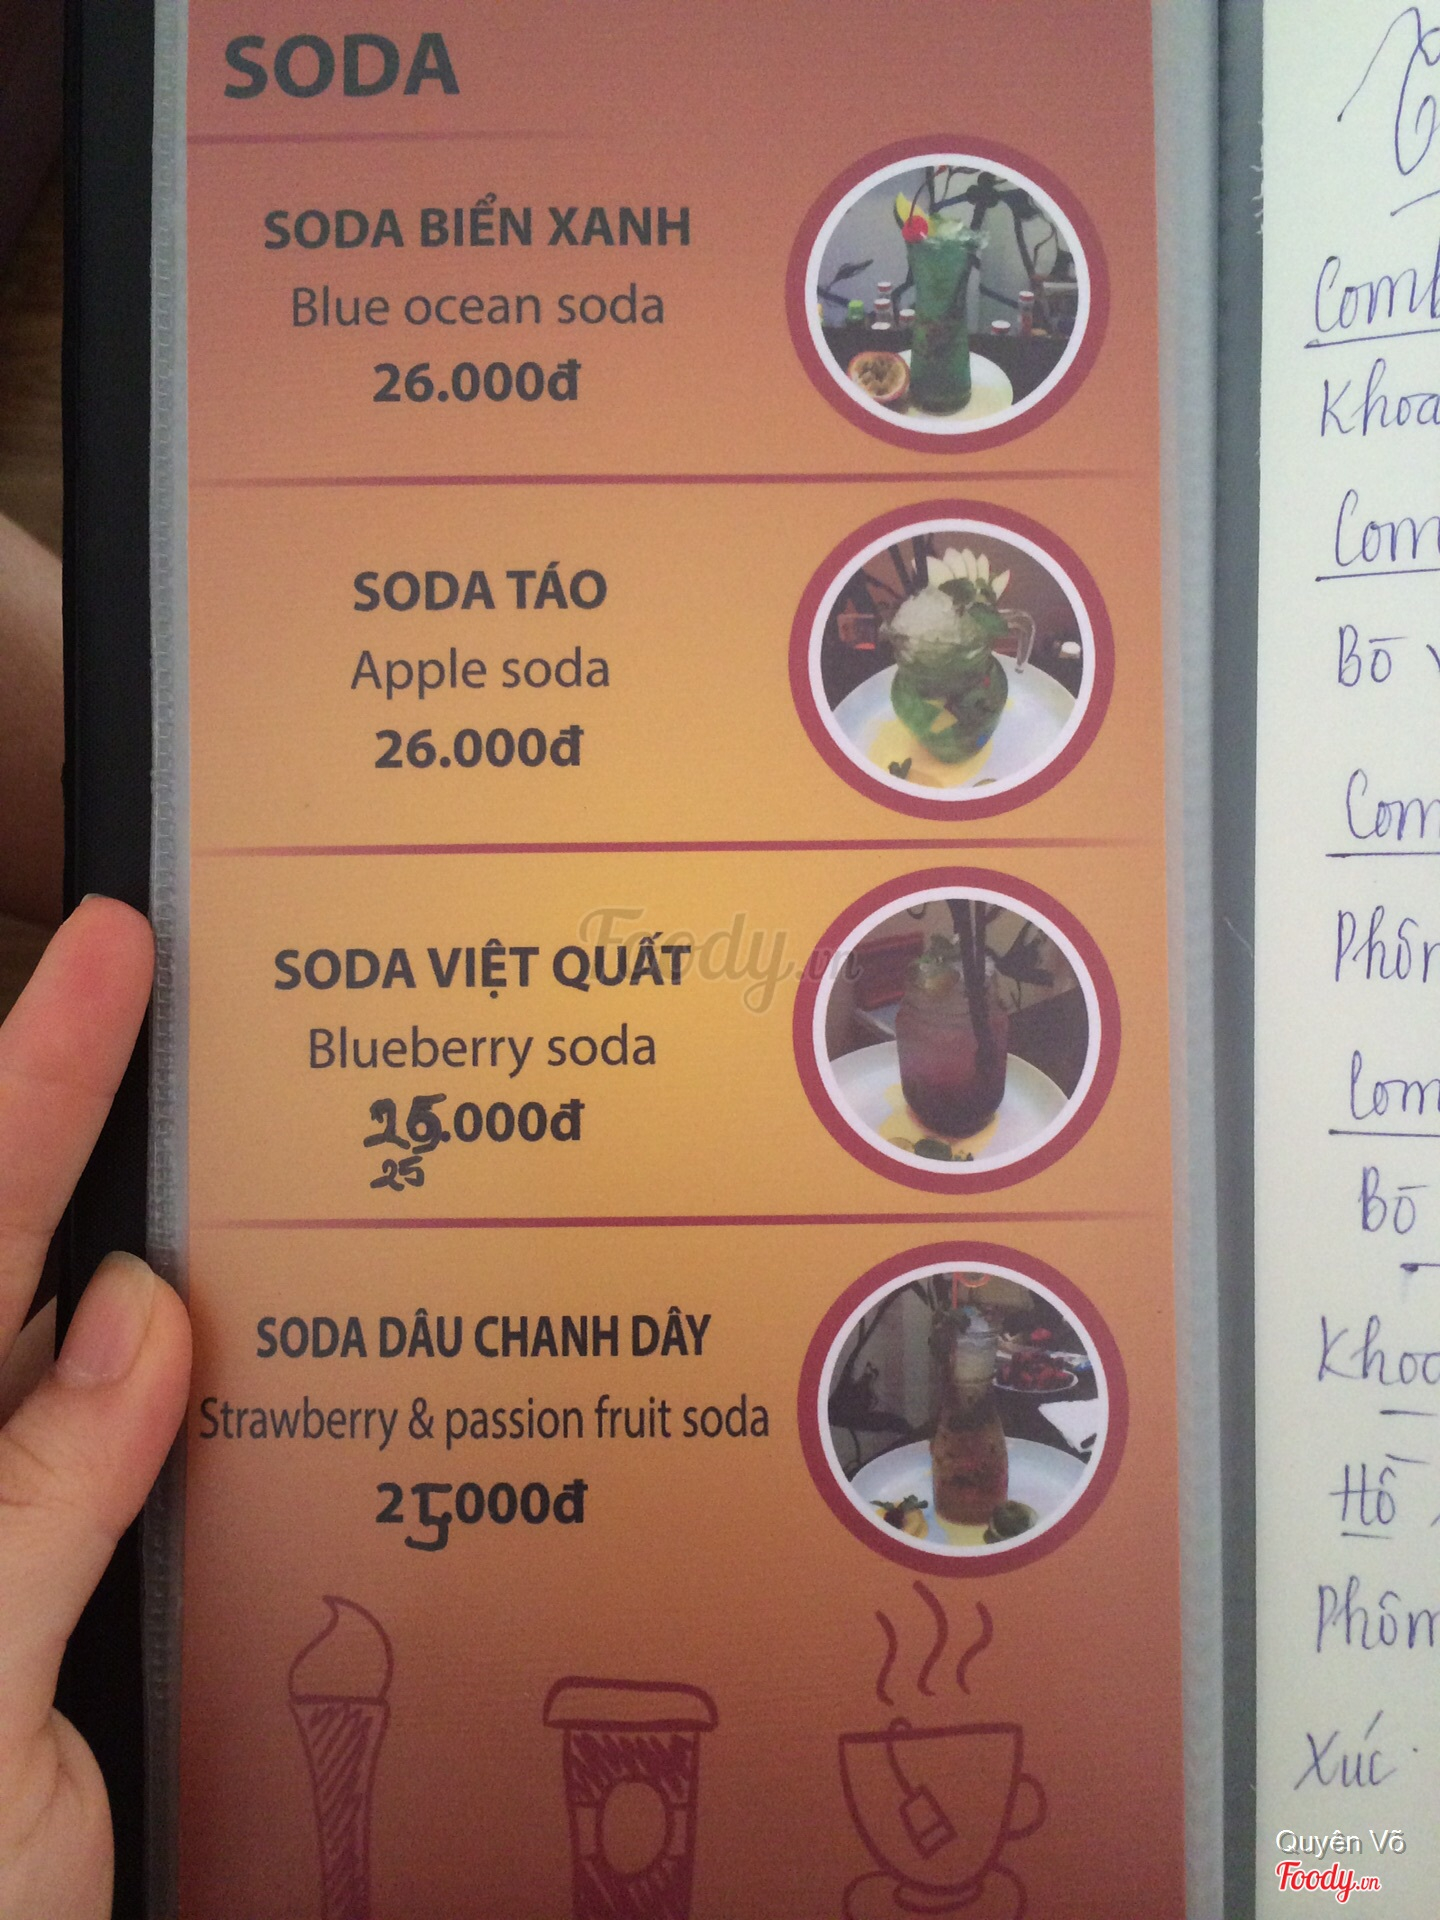 SODA
SODA BIỂN XANH
Blue ocean soda
26.000đ
SODA TÁO
Apple soda
26.000đ
SODA VIỆT QUẤT
Blueberry soda
25.000đ
25
SODA DÂU CHANH DÂY
Strawberry & passion fruit soda
25.000đ
Foody.vn
Bò
Bò
Hồ
Xúc
Quyên Võ
Foody.vn